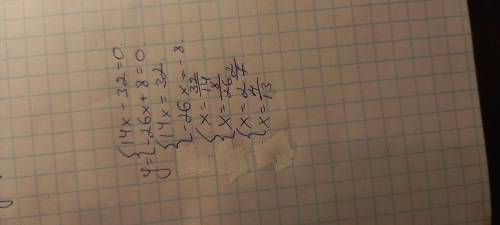 y = { 14x - 32 = 0
{ -26x + 8 = 0.
{ 14x = 32.
{ -26x = -8.
{ x = 32/14
{ x = 8/26
{ x = 2 2/7
{ x = 4/13